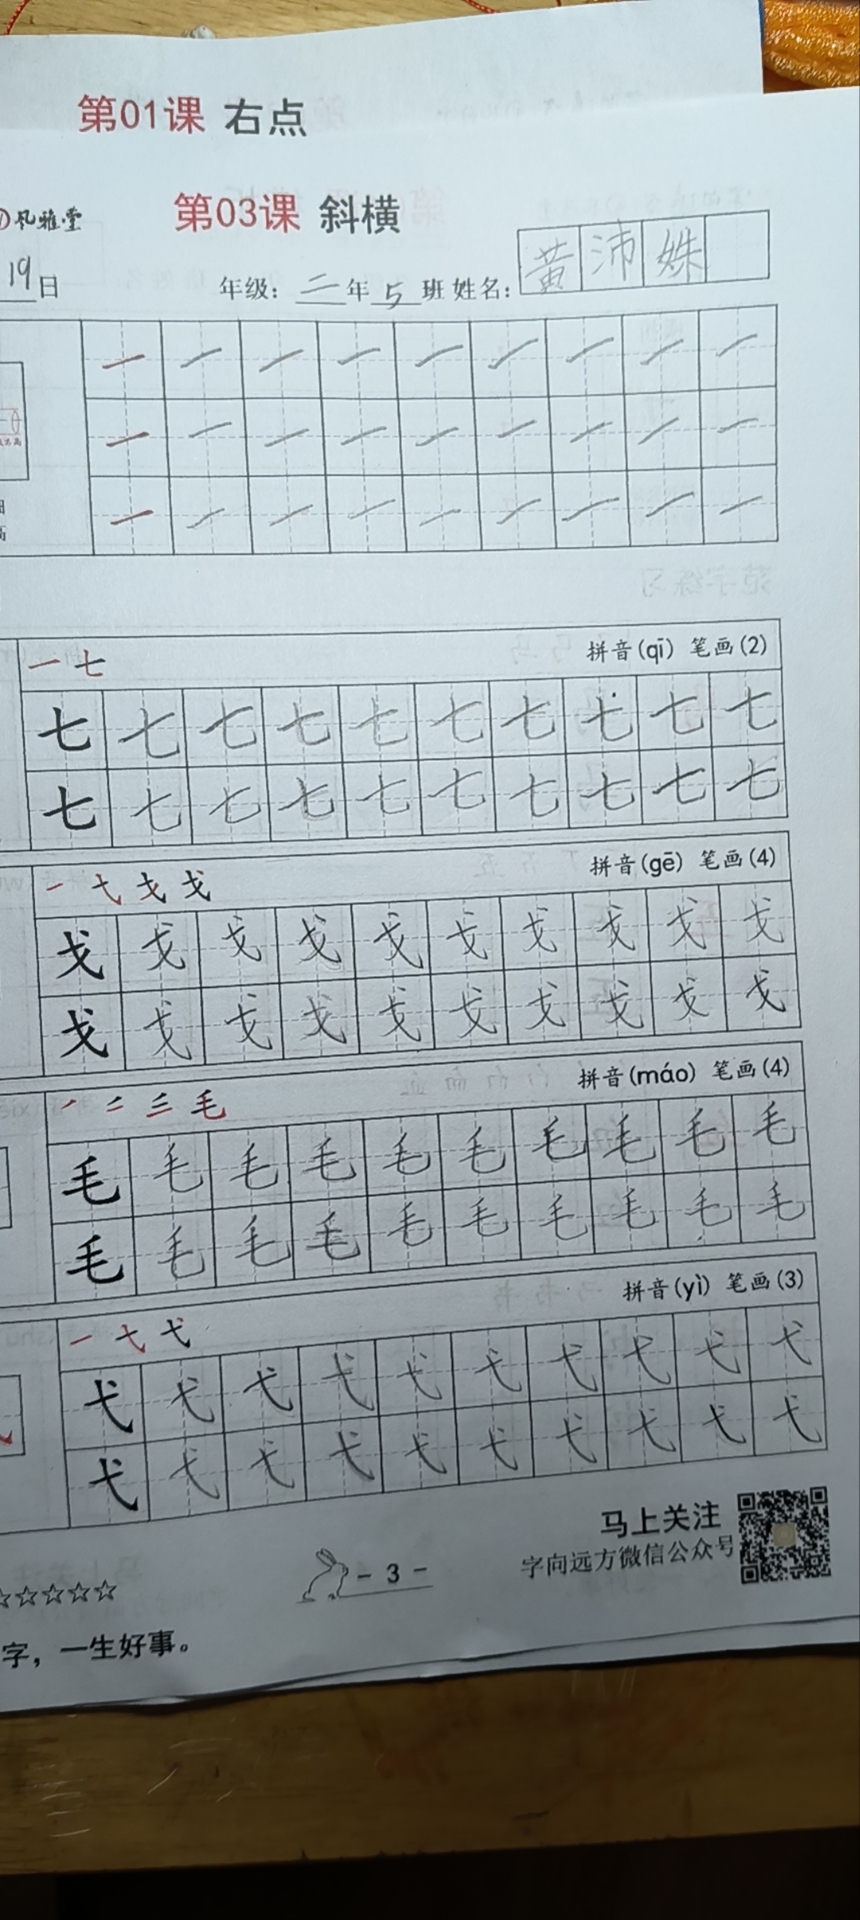 第01课 右点
风雅堂
第03课 斜横
19日
年级：二年5班 姓名：黄沛姝
一 一 一 一 一 一 一 一 一
一 一 一 一 一 一 一 一 一
一 一 一 一 一 一 一 一 一
一 七 拼音(qī) 笔画(2)
七 七 七 七 七 七 七 七 七 七
七 七 七 七 七 七 七 七 七 七
一 七 戈 戈 拼音(gē) 笔画(4)
戈 戈 戈 戈 戈 戈 戈 戈 戈 戈
戈 戈 戈 戈 戈 戈 戈 戈 戈 戈
拼音(máo) 笔画(4)
毛
毛 毛 毛 毛 毛 毛 毛 毛 毛 毛
毛 毛 毛 毛 毛 毛 毛 毛 毛 毛
拼音(yì) 笔画(3)
一 弋
弋 弋 弋 弋 弋 弋 弋 弋 弋 弋
弋 弋 弋 弋 弋 弋 弋 弋 弋 弋
马上关注
字向远方微信公众号
- 3 -
☆☆☆☆☆
字，一生好事。